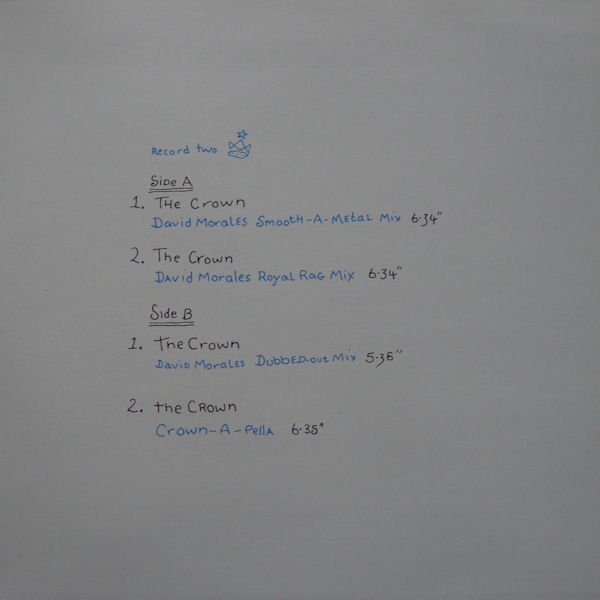 Record two
Side A
1. THe Crown
David MoralEs SmootH-A-MEtaL Mix 6·34"
2. The Crown
DAvid Morales Royal RaG Mix 6·34"
Side B
1. the Crown
DaviD MoralEs DubbED-out Mix 5·36"
2. the CRown
Crown-A-PellA 6·35"